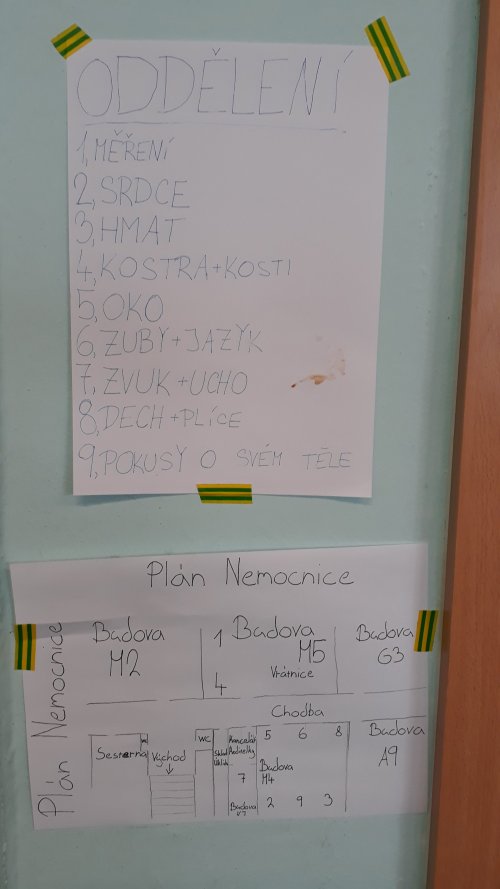 ODDĚLENÍ
1, MĚŘENÍ
2, SRDCE
3, HMAT
4, KOSTRA+KOSTI
5, OKO
6, ZUBY+JAZYK
7, ZVUK+UCHO
8, DECH+PLÍCE
9, POKUSY O SVÉM TĚLE
Plán Nemocnice
Plán Nemocnice
Budova
M2
1
4
Budova
M5
Vrátnice
Budova
G3
Chodba
Sesterna
Východ
WC
Sklad
Kancelář
7
Budova
5 6 8
Budova
M4
2 9 3
Budova
A9